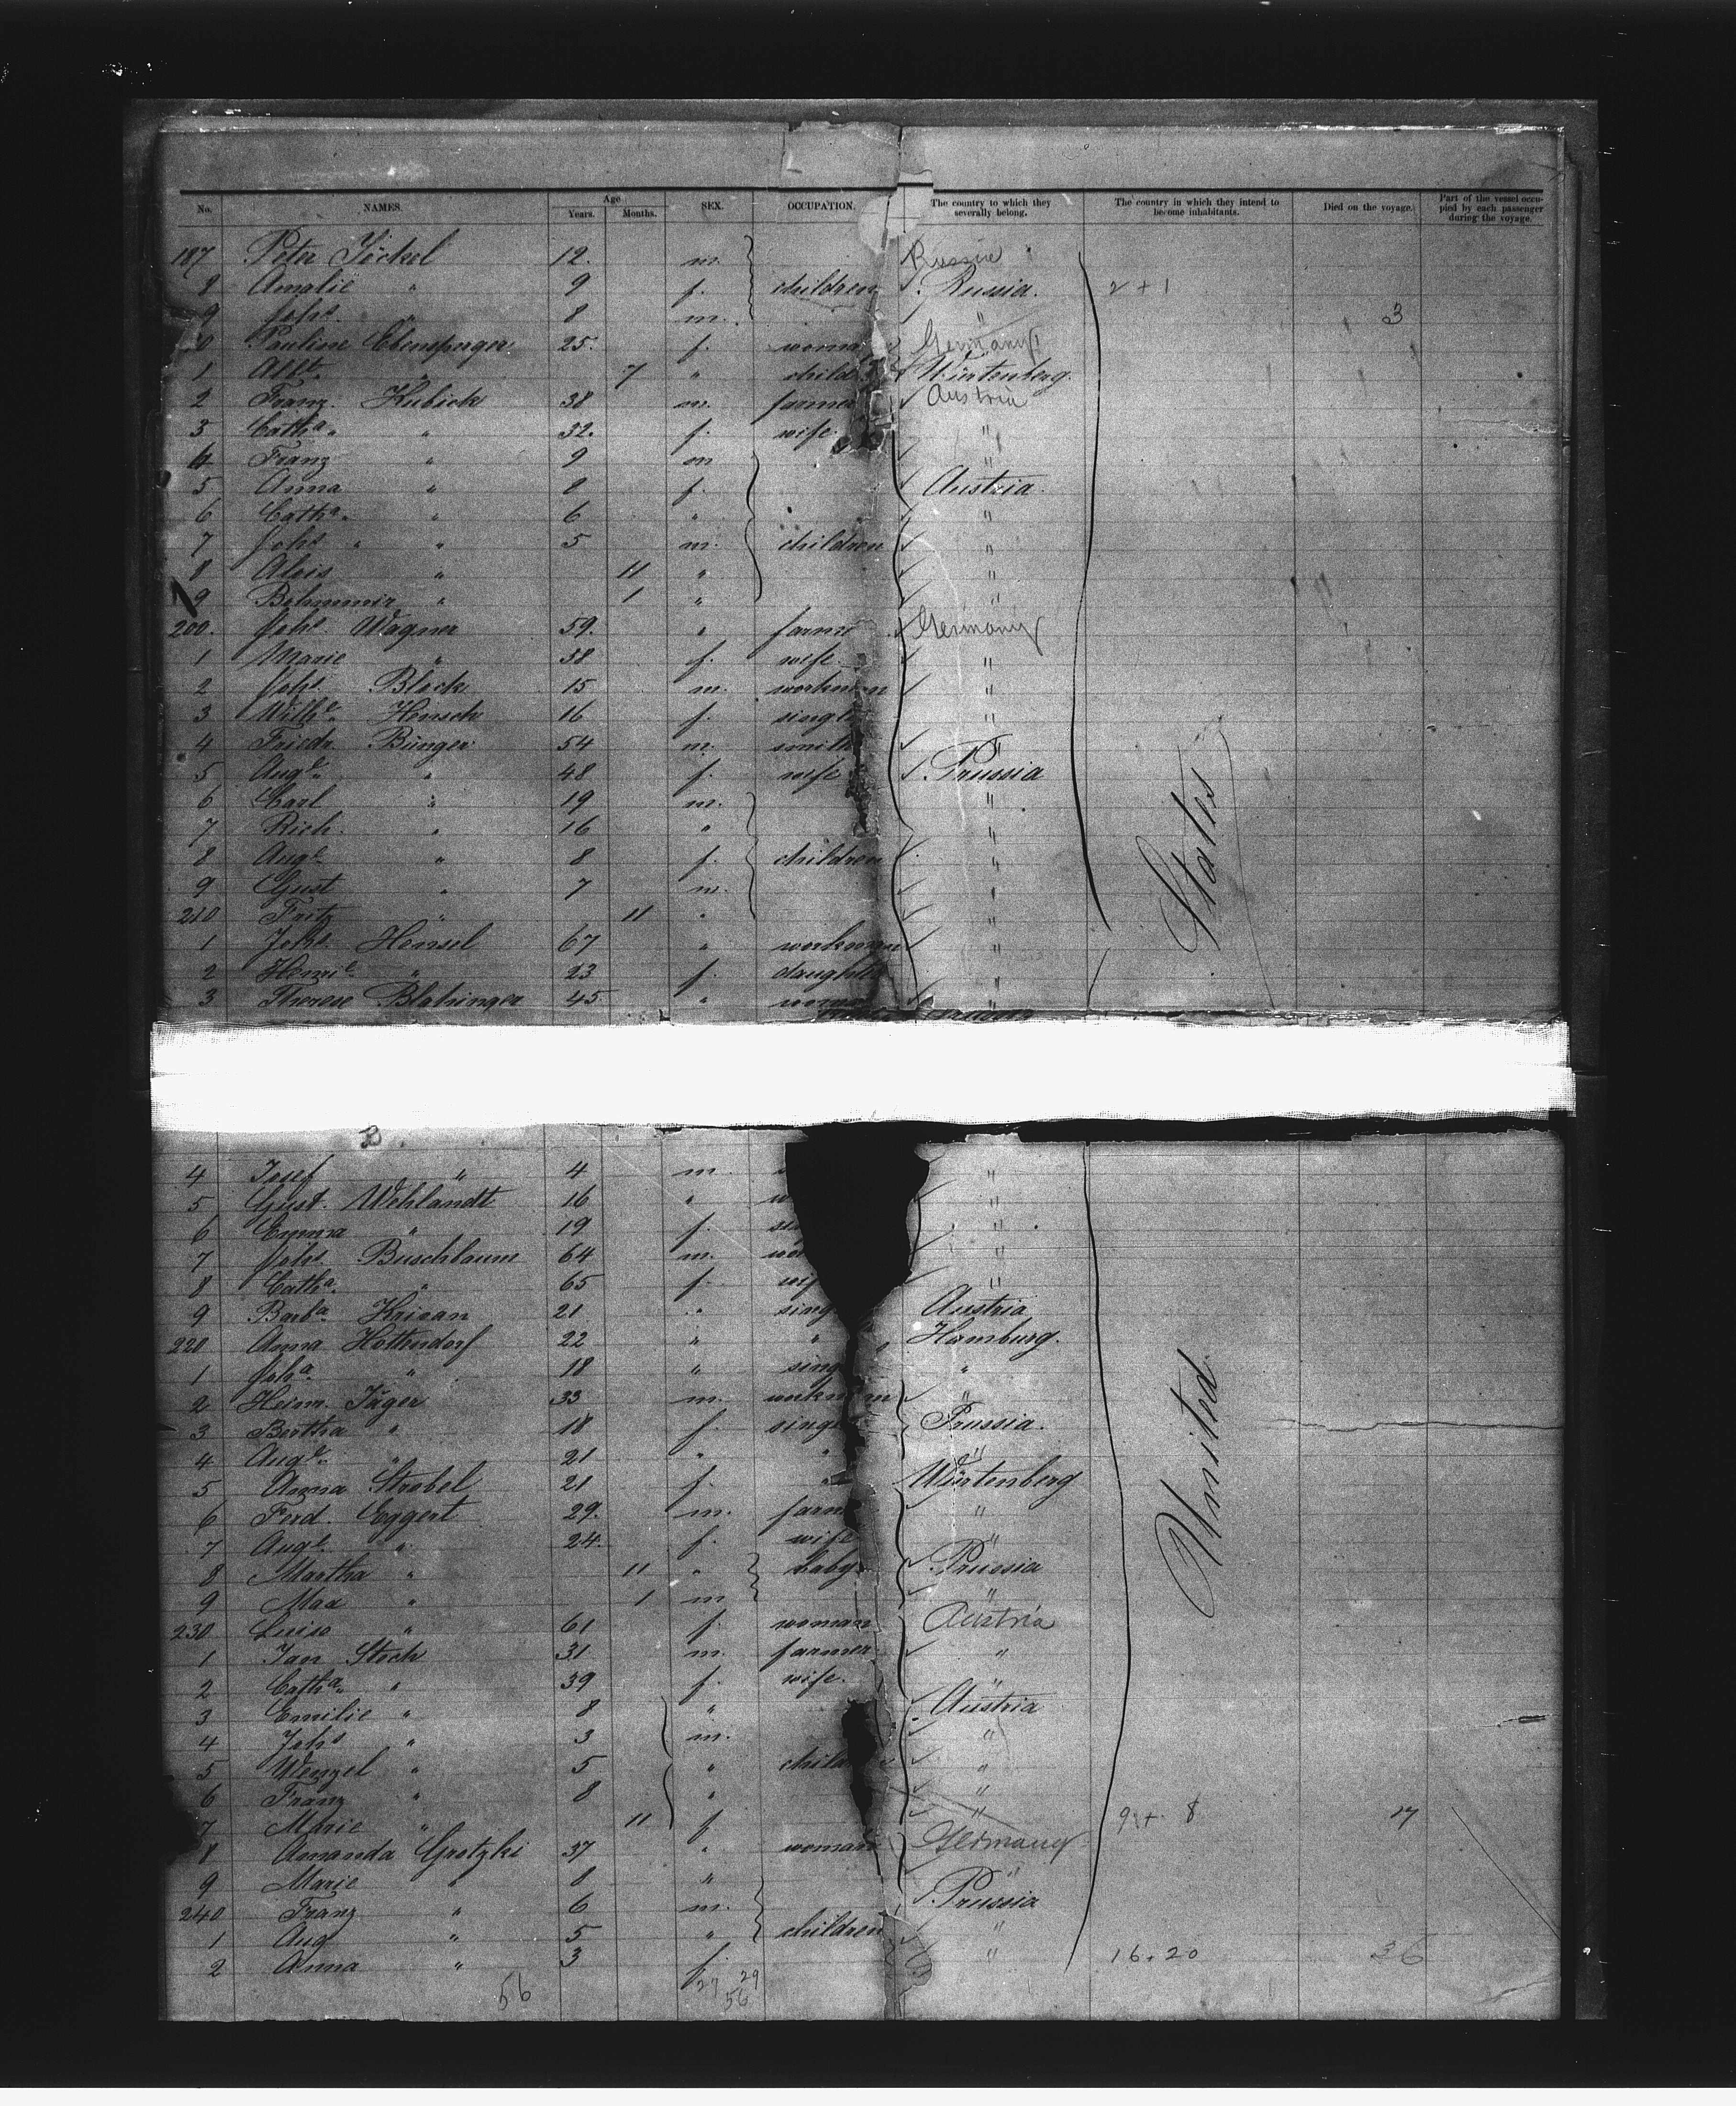 No. NAMES. Age Years. Months. SEX. OCCUPATION. The country to which they severally belong. The country in which they intend to become inhabitants. Died on the voyage. Part of the vessel occupied by each passenger during the voyage.
187 Peter Jöckel 12. m. Russia
8 Amalie " 9 f. children Russia. 2 + 1
9 Johs. " 8 m. " 3
0 Pauline Ebensperger 25. f. woman Germany
1 " 7 " child Würtenberg.
2 Franz Kubick 38 m. farmer Austria
3 Catha. " 32. f. wife "
4 Franz " 9 m "
5 Anna " 8 f. Austria.
6 Catha. " 6 " "
7 Johs. " 5 m. children "
8 Alois " 11 " "
9 " 1 " "
200. Johs. Wagner 59. " farm Germany
1 Marie " 58 f. wife "
2 Johs. Block 15 m. workman "
3 Wilhe. Hensch 16 f. single "
4 Friedr. Bünger 54 m. smith "
5 Auge. " 48 f. wife Prussia
6 Carl " 19 m. "
7 Rich. " 16 " "
8 Auge. " 8 f. children "
9 Gust " 7 m. "
210 Fritz " 11 " "
1 Johs. Hensel 67 " workman "
2 Henrie. " 23 f. daughter "
3 Therese Blahinger 45. " woman "
States
4 Josef " 4 m. "
5 Gust. Wehlandt 16 " "
6 Emma " 19 f. "
7 Johs. Buschbaum 64 m. "
8 Catha. " 65 f. wif "
9 Barba. Krivan 21 " sing Austria
220 Anna Hottendorf 22 " " Hamburg.
1 Joha. " 18 " sing "
2 Heinr. Jäger 33 m. unknown "
3 Bertha " 18 f. singl Prussia.
4 Auge. " 21 " " "
5 Anna Strobel 21 f. " Würtenberg
6 Ferd. Eggert 29. m. farm "
7 Auge. " 24. f. wife "
8 Martha " 11 " baby Prussia
9 Max " 1 m "
230 Luise " 61 f. woman Austria
1 Jan Stech 31. m. farmer "
2 Catha. " 39 f. wife. "
3 Emilie " 8 " Austria
4 Johs " 3 m. "
5 Wenzel " 5 " child "
6 Franz " 8 " "
7 Marie " 11 f " 9 + 8 17
8 Amanda Grotzki 37 " woman Germany
9 Marie " 8 " "
240 Franz " 6 m. Prussia
1 Aug " 5 " children "
2 Anna " 3 f. " 16.20 36
United
56 27 29
56